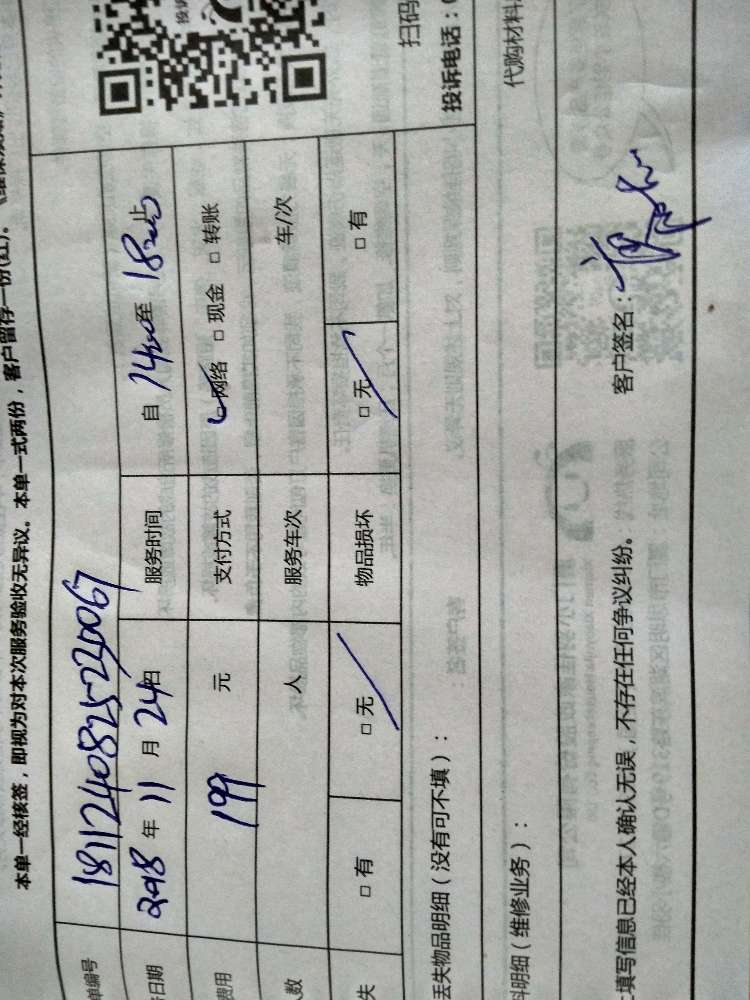 本单一经核签，即视为对本次服务验收无异议。本单一式两份，客户留存一份(红)。
单编号 1811240825220067
日期 2018 年 11 月 24 日 服务时间 自 14:00 至 18:00 止
费用 199 元 支付方式 网络 □ 现金 □ 转账
人数 人 服务车次 车/次
失 □ 有 □ 无 物品损坏 □ 无 □ 有
丢失物品明细（没有可不填）：
料明细（维修业务）：
填写信息已经本人确认无误，不存在任何争议纠纷。 客户签名：
投诉
扫码
投诉电话：0
代购材料